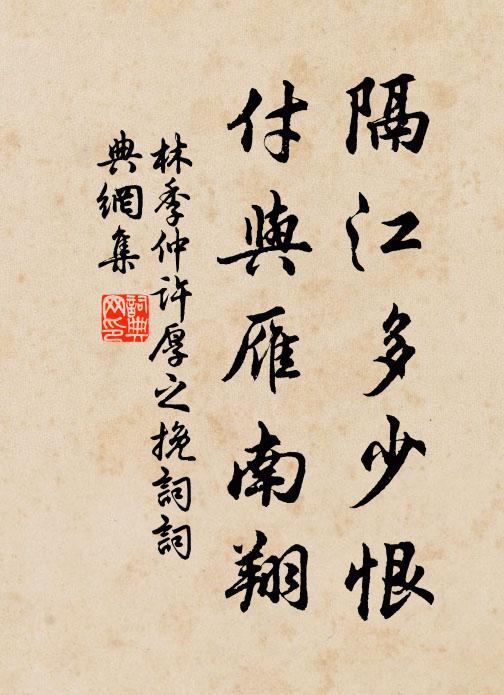 隔江多少恨
付與雁南翔
林季仲許厚之挽詞詞
典網集
詞典
网印